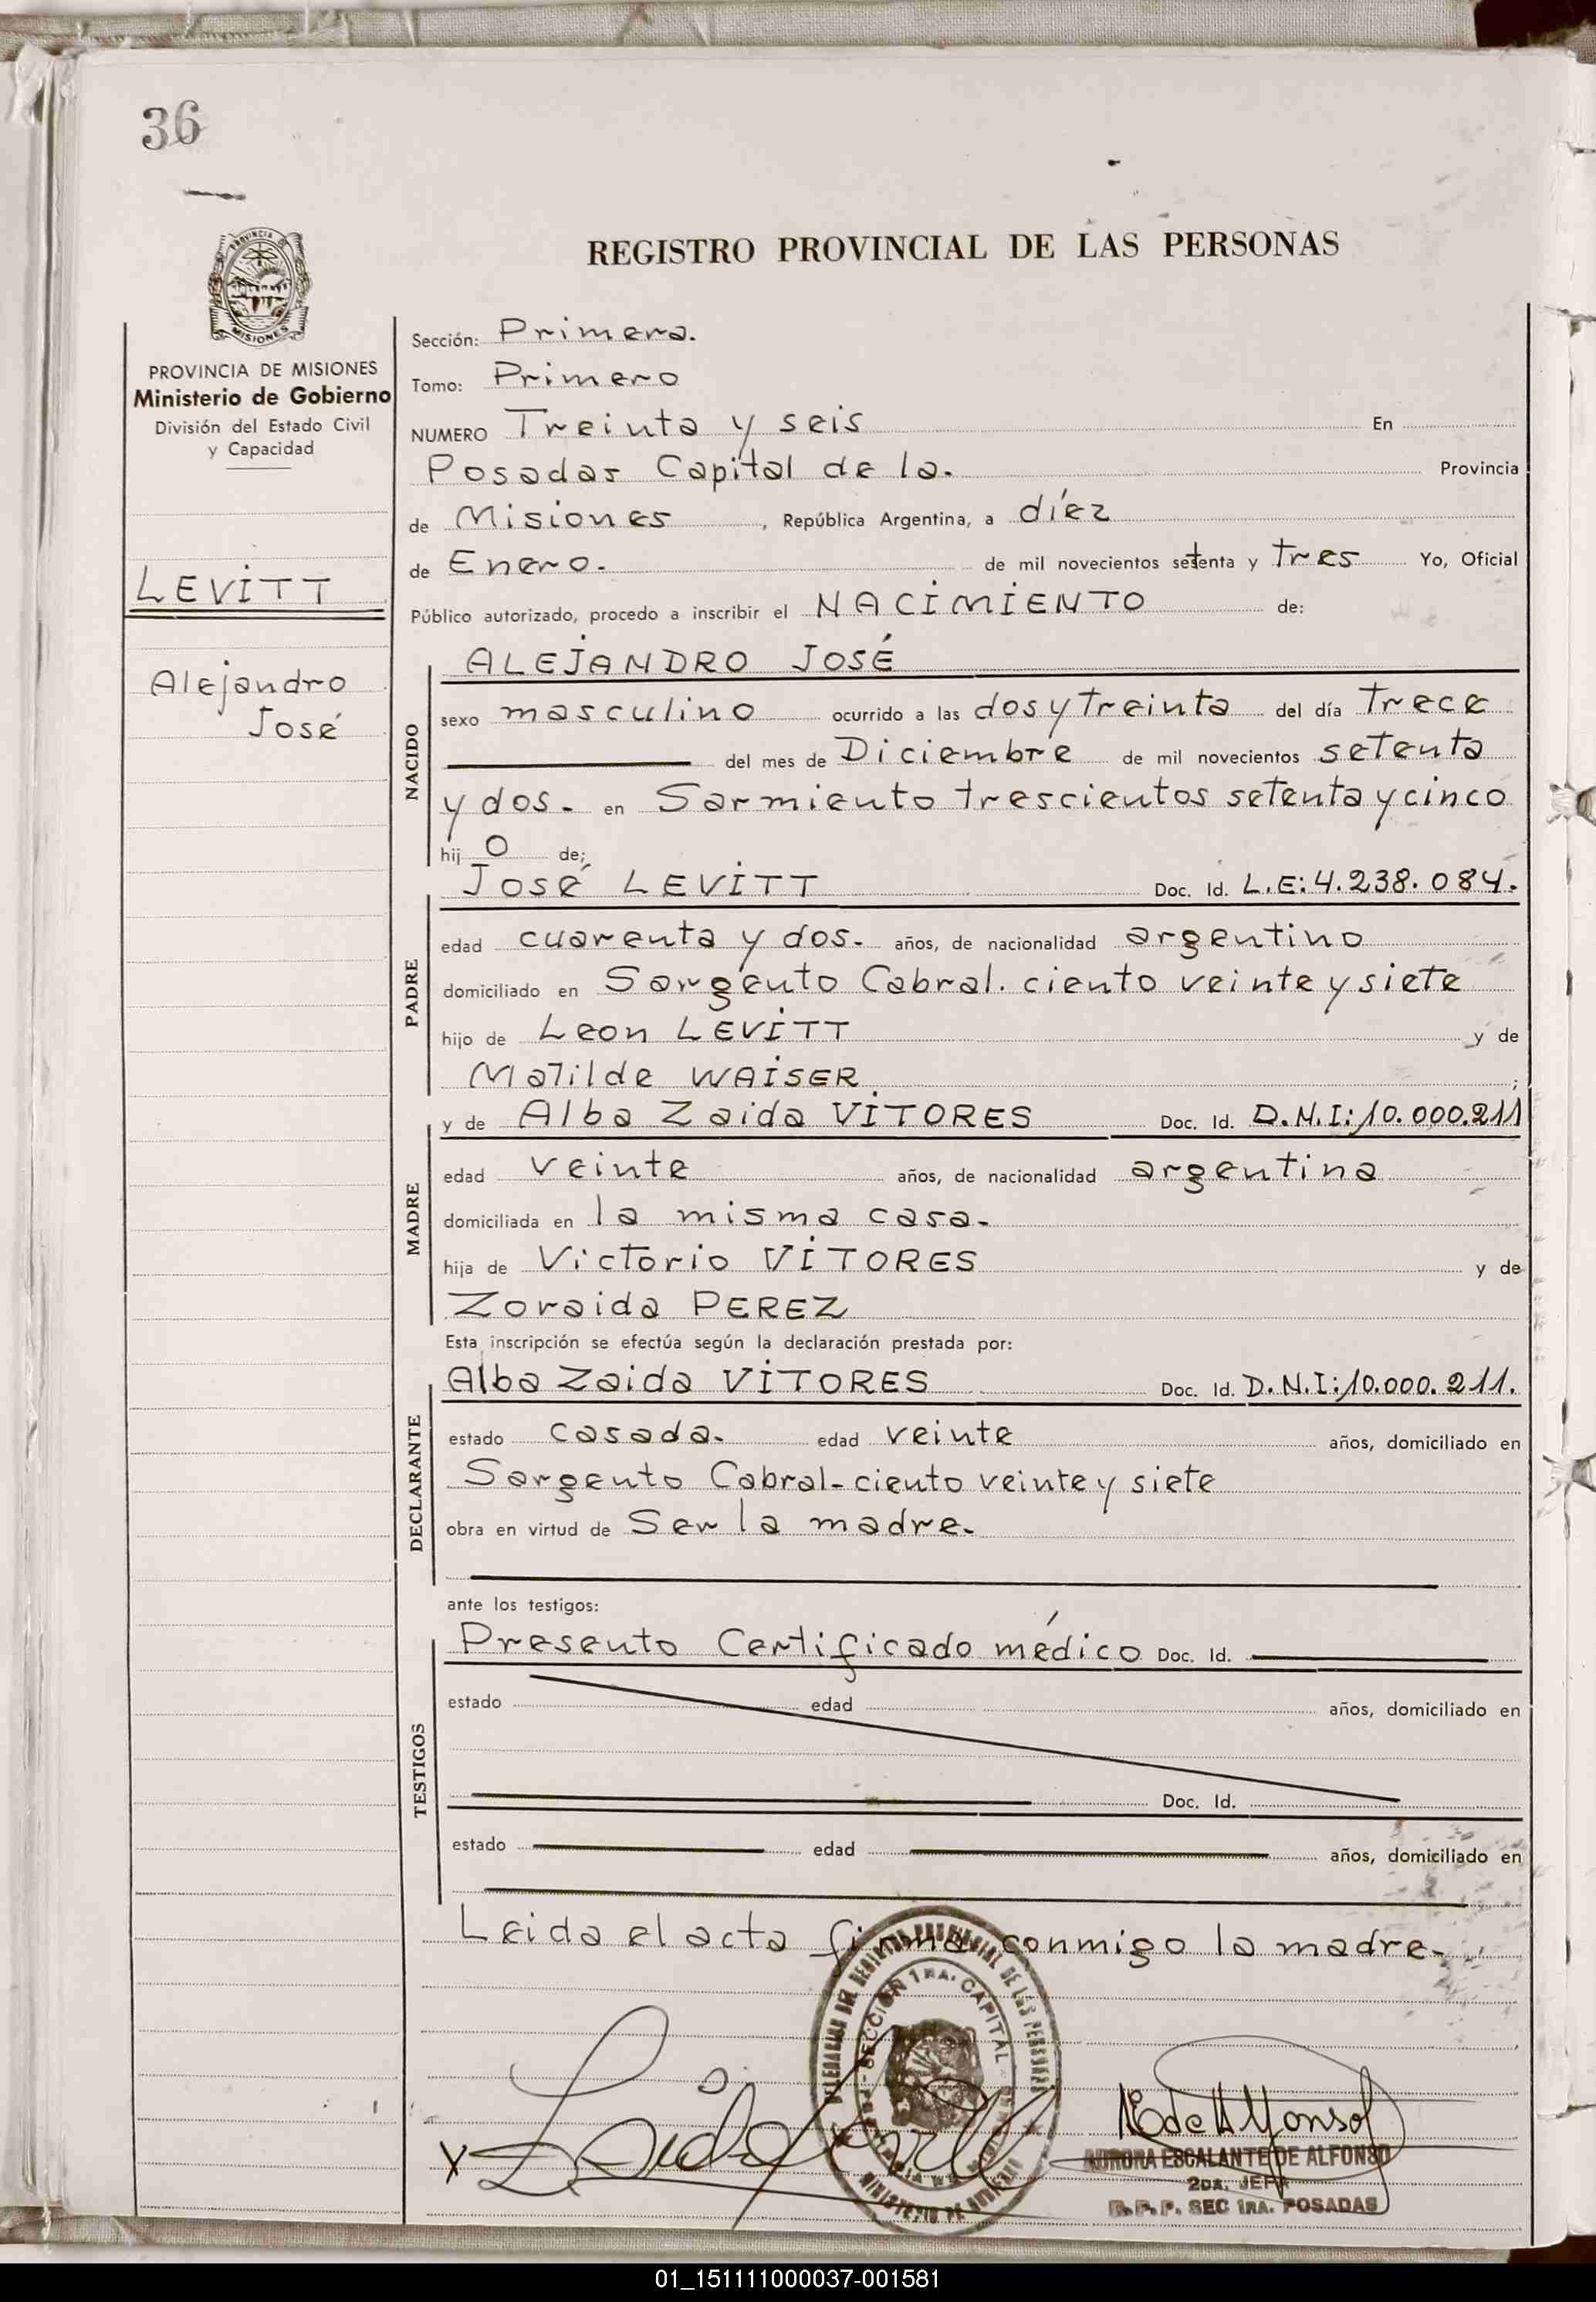 36
REGISTRO PROVINCIAL DE LAS PERSONAS
PROVINCIA DE
MISIONES
PROVINCIA DE MISIONES
Ministerio de Gobierno
División del Estado Civil
y Capacidad
LEVITT
Alejandro
José
Sección: Primera.
Tomo: Primero
NUMERO Treinta y seis En
Posadas Capital de la. Provincia
de Misiones, República Argentina, a diez
de Enero. de mil novecientos setenta y tres Yo, Oficial
Público autorizado, procedo a inscribir el NACIMIENTO de:
NACIDO
ALEJANDRO JOSÉ
sexo masculino ocurrido a las dos y treinta del día trece
del mes de Diciembre de mil novecientos setenta
y dos. en Sarmiento trescientos setenta y cinco
hij o de;
PADRE
José LEVITT Doc. Id. L.E: 4.238.084.
edad cuarenta y dos. años, de nacionalidad argentino
domiciliado en Sargento Cabral. ciento veinte y siete
hijo de Leon LEVITT y de
Matilde WAISER ;
MADRE
y de Alba Zaida VITORES Doc. Id. D.N.I: 10.000.211
edad veinte años, de nacionalidad argentina
domiciliada en la misma casa.
hija de Victorio VITORES y de
Zoraida PEREZ
Esta inscripción se efectúa según la declaración prestada por:
DECLARANTE
Alba Zaida VITORES Doc. Id. D.N.I: 10.000.211.
estado casada. edad veinte años, domiciliado en
Sargento Cabral-ciento veinte y siete
obra en virtud de Ser la madre.
ante los testigos:
TESTIGOS
Presento Certificado médico Doc. Id.
estado edad años, domiciliado en
Doc. Id.
estado edad años, domiciliado en
Leida el acta firma conmigo la madre.
PROVINCIAL DE LAS PERSONAS
SECCION 1RA. CAPITAL
MINISTERIO DE
AURORA ESCALANTE DE ALFONSO
2DA. JEFA
R.P.P. SEC 1RA. POSADAS
01_151111000037-001581